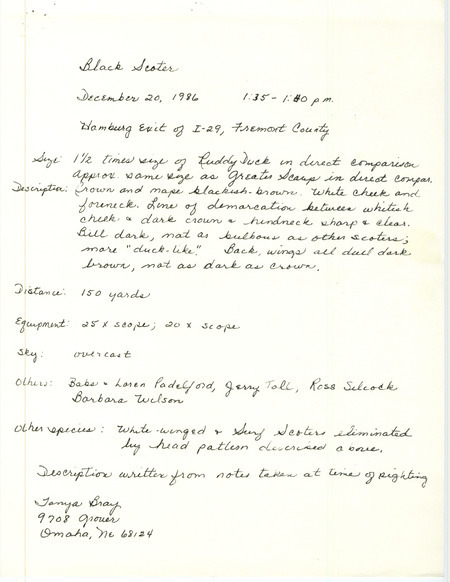 Black Scoter
December 20, 1986 1:35 - 1:40 p.m.
Hamburg Exit of I-29, Fremont County
Size: 1½ times size of Ruddy Duck in direct comparison
Approx. same size as Greater Scaup in direct compar.
Description: Crown and nape blackish-brown. White cheek and
foreneck. Line of demarcation between whitish
cheek & dark crown & hindneck sharp & clear.
Bill dark, not as bulbous as other scoters;
more "duck-like". Back, wings all dull dark
brown, not as dark as crown.
Distance: 150 yards
Equipment: 25 x scope; 20 x scope
Sky: overcast
Others: Babs & Loren Padelford, Jerry Toll, Ross Silcock
Barbara Wilson
Other species: White-winged & Surf Scoters eliminated
by head pattern described above.
Description written from notes taken at time of sighting
Tanya Bray
9708 Grover
Omaha, Ne 68124